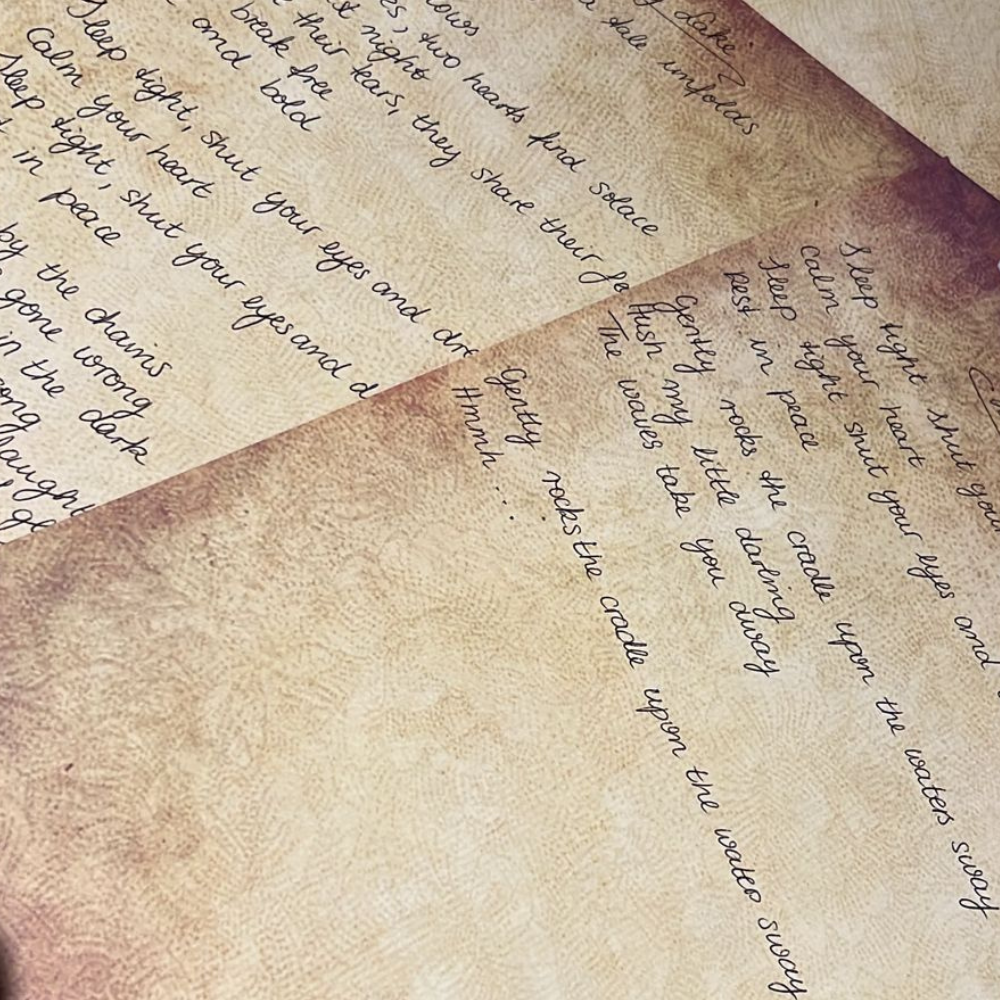 Lake
tale unfolds
two hearts find solace
night
their tears, they share their
break free
and bold
Sleep tight, shut your eyes and
Calm your heart
Sleep tight, shut your eyes and
in peace
by the chains
gone wrong
in the dark
Sleep tight shut
calm your heart
Sleep tight shut your eyes and
Rest in peace
Gently rocks the cradle upon the waters sway
Hush my little darling
The waves take you away
Gently rocks the cradle upon the water sway
Hmmh...